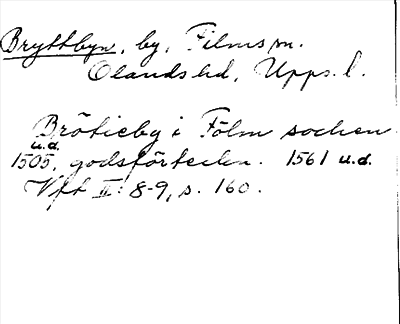 Bryttbyn, by, Films sn.
Olands hd, Upps. l.
Brötieby i Fölm sochen
u.d.
1505, godsförteckn. 1561 u.d.
Vft II: 8-9, s. 160.